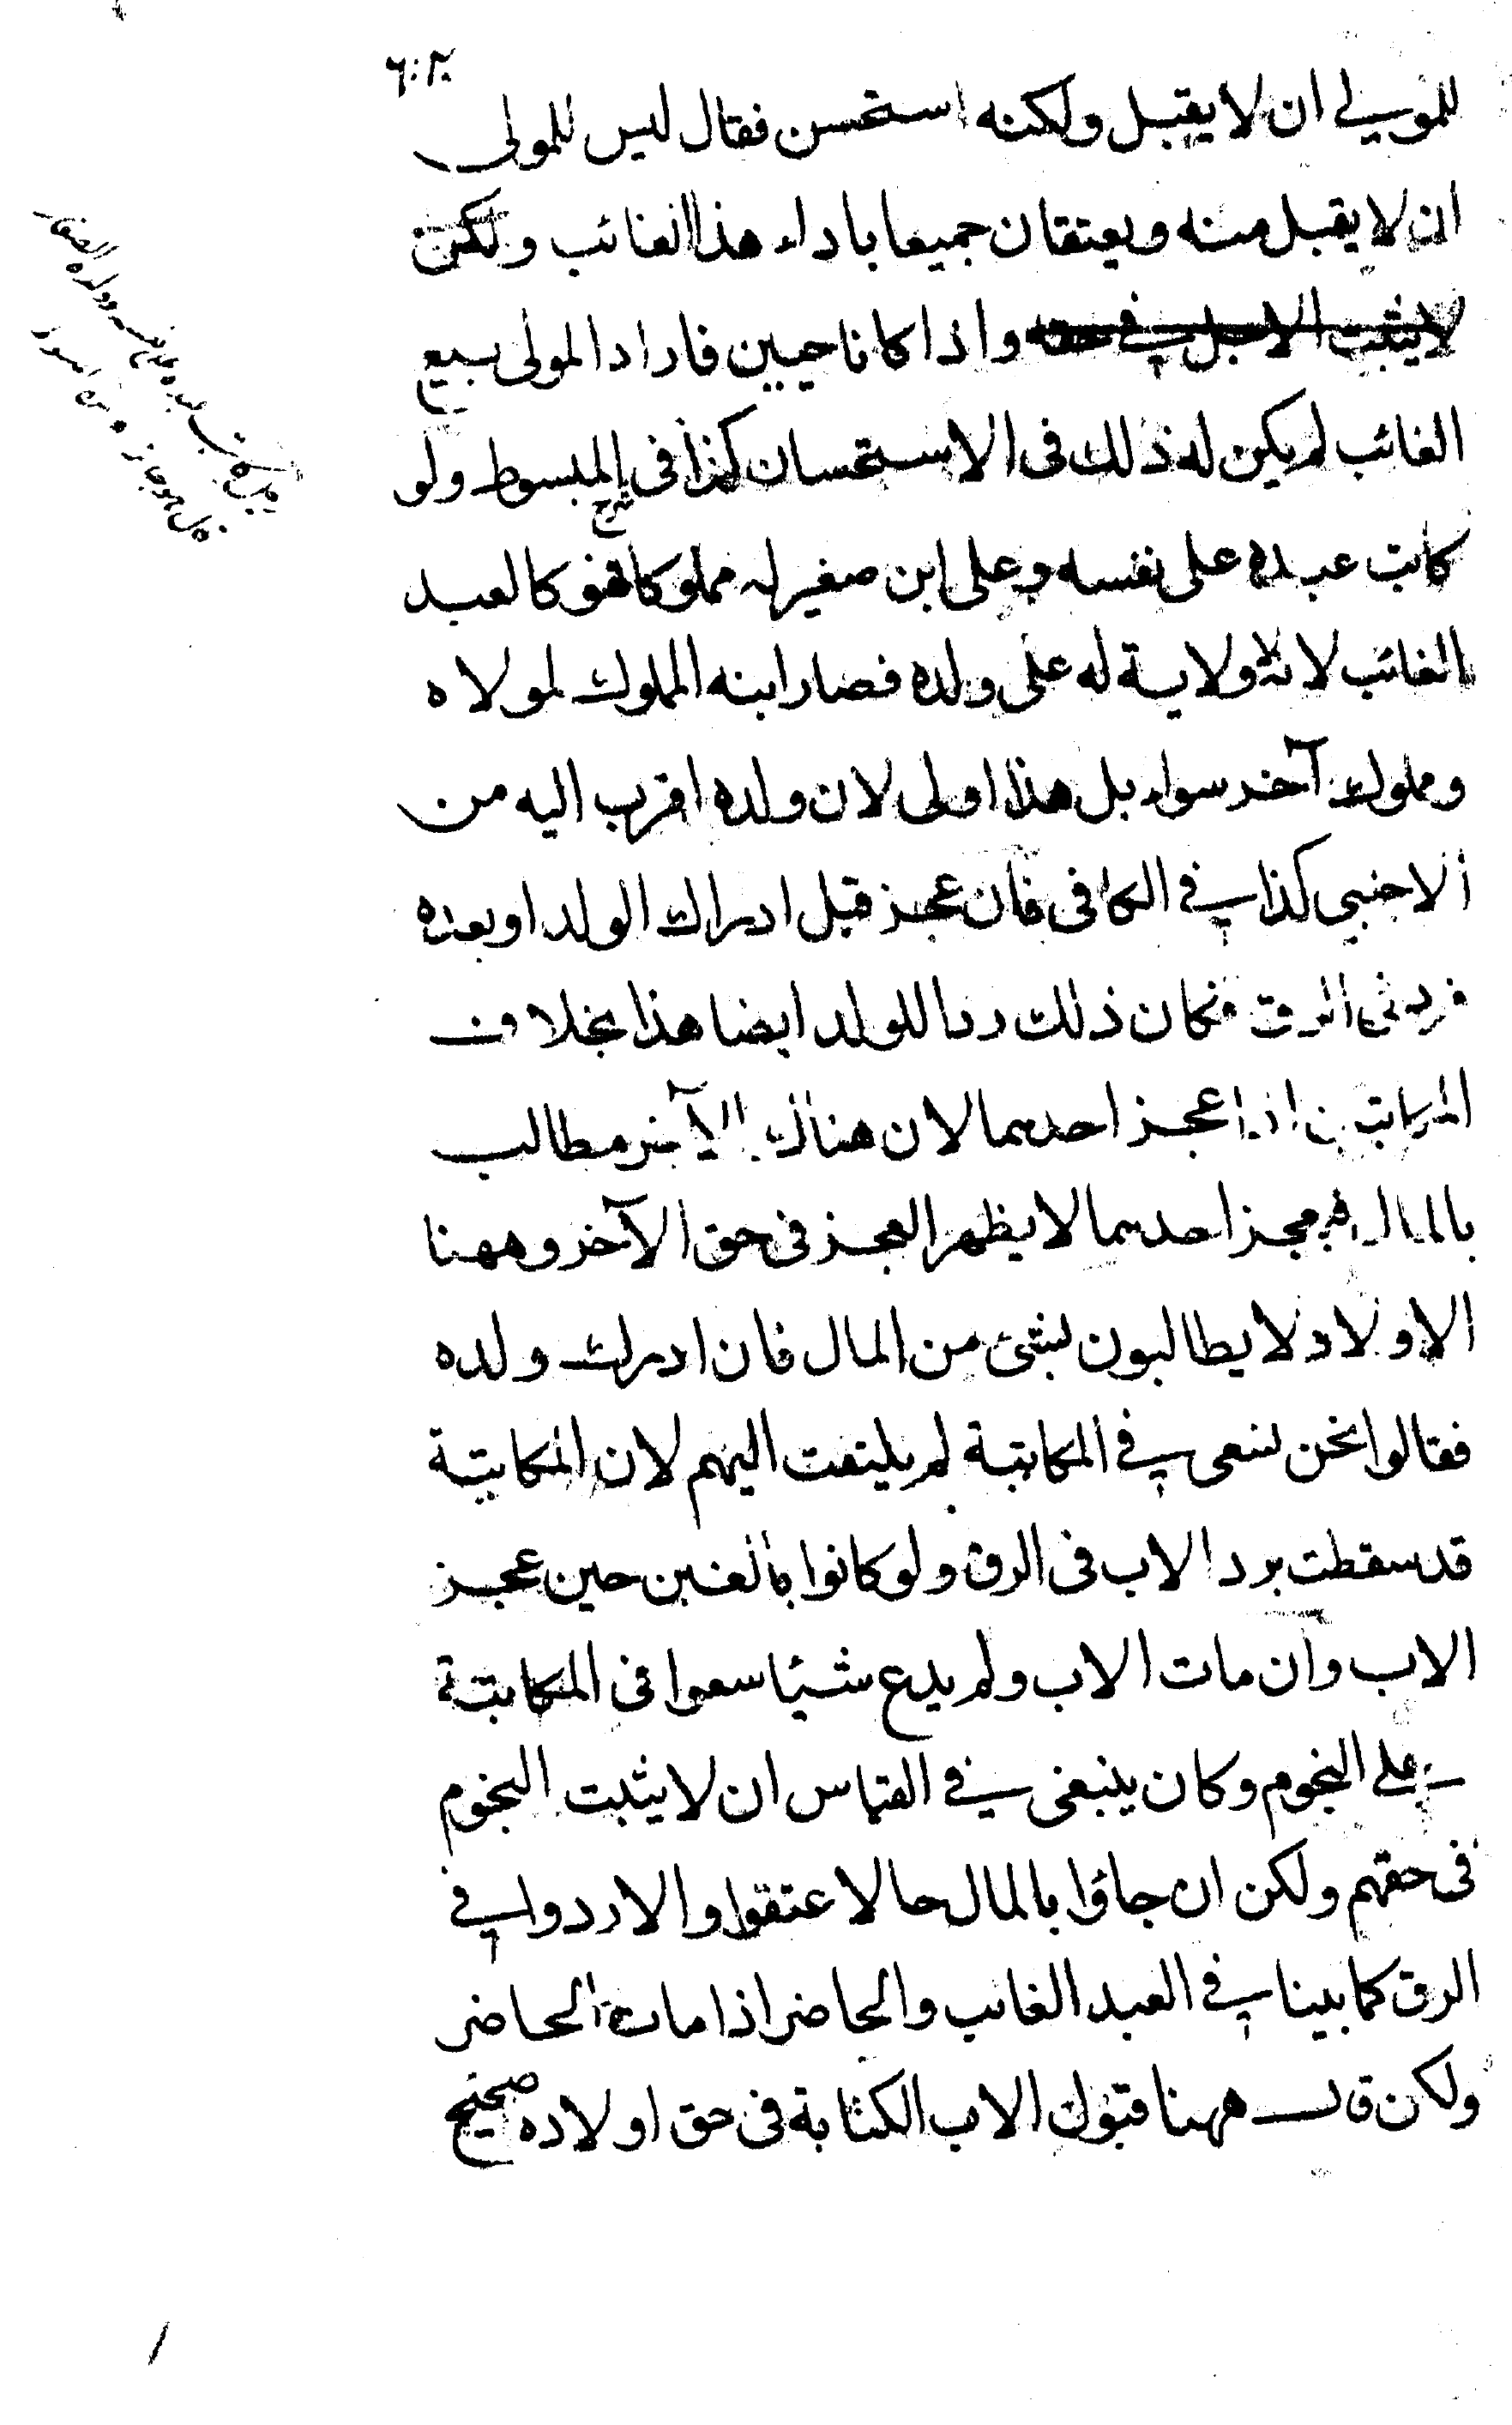 للمولى ان لا يقبل ولكنه استحسن فقال ليس للمولى
ان لا يقبل منه ويعتقان جميعا باداء هذا الغائب ولكن
لا يثبت الاجل في حقه واذا كانا حيين فاراد المولى بيع
الغائب لم يكن له ذلك فى الاستحسان كذا فى شرح المبسوط ولو
كاتب عبده على نفسه وعلى ابن صغير له مملوكا فهو كالعبد
الغائب لانه لا ولاية له على ولده فصار ابنه المملوك لمولاه
ومملوك آخر سواء بل هذا اولى لان ولده اقرب اليه من
الاجنبي كذا في الكافى فان عجز قبل ادراك الولد او بعده
فرد فى الرق فكان ذلك ردا للولد ايضا هذا بخلاف
المكاتبين اذا عجز احدهما لان هناك الآخر مطالب
بالمال فبعجز احدهما لا يظهر العجز فى حق الآخر وههنا
الاولاد لا يطالبون بشئ من المال فان ادرك ولده
فقالوا نحن نسعى في المكاتبة لم يلتفت اليهم لان المكاتبة
قد سقطت برد الاب فى الرق ولو كانوا بالغين حين عجز
الاب وان مات الاب ولم يدع شيئا سعوا فى المكاتبة
على النجوم وكان ينبغى في القياس ان لا يثبت النجوم
فى حقهم ولكن ان جاؤا بالمال حالا عتقوا والا ردوا في
الرق كما بينا في العبد الغائب والحاضر اذا مات الحاضر
ولكن قال ههنا قبول الاب الكتابة فى حق اولاده صحيح